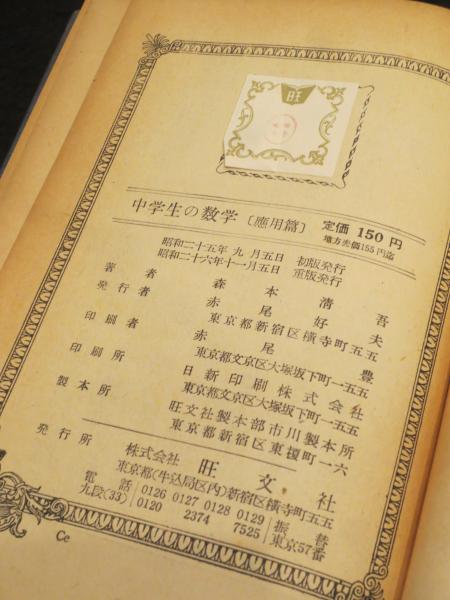 旺
中学生の数学〔應用篇〕 定価 150 円
地方売價155円迄
昭和二十五年 九 月五日 初版発行
昭和二十六年十一月五日 重版発行
著者 森本清吾
発行者 赤尾好夫
東京都新宿区横寺町五五
印刷者 赤尾豊
東京都文京区大塚坂下町一五五
印刷所 日新印刷株式会社
東京都文京区大塚坂下町一五五
製本所 旺文社製本部市川製本所
東京都新宿区東榎町一六
発行所 株式会社 旺文社
東京都(牛込局区内)新宿区横寺町五五
電話 0126 0127 0128 0129 振替
九段(33) 0120 2374 7525 東京57番
Ce